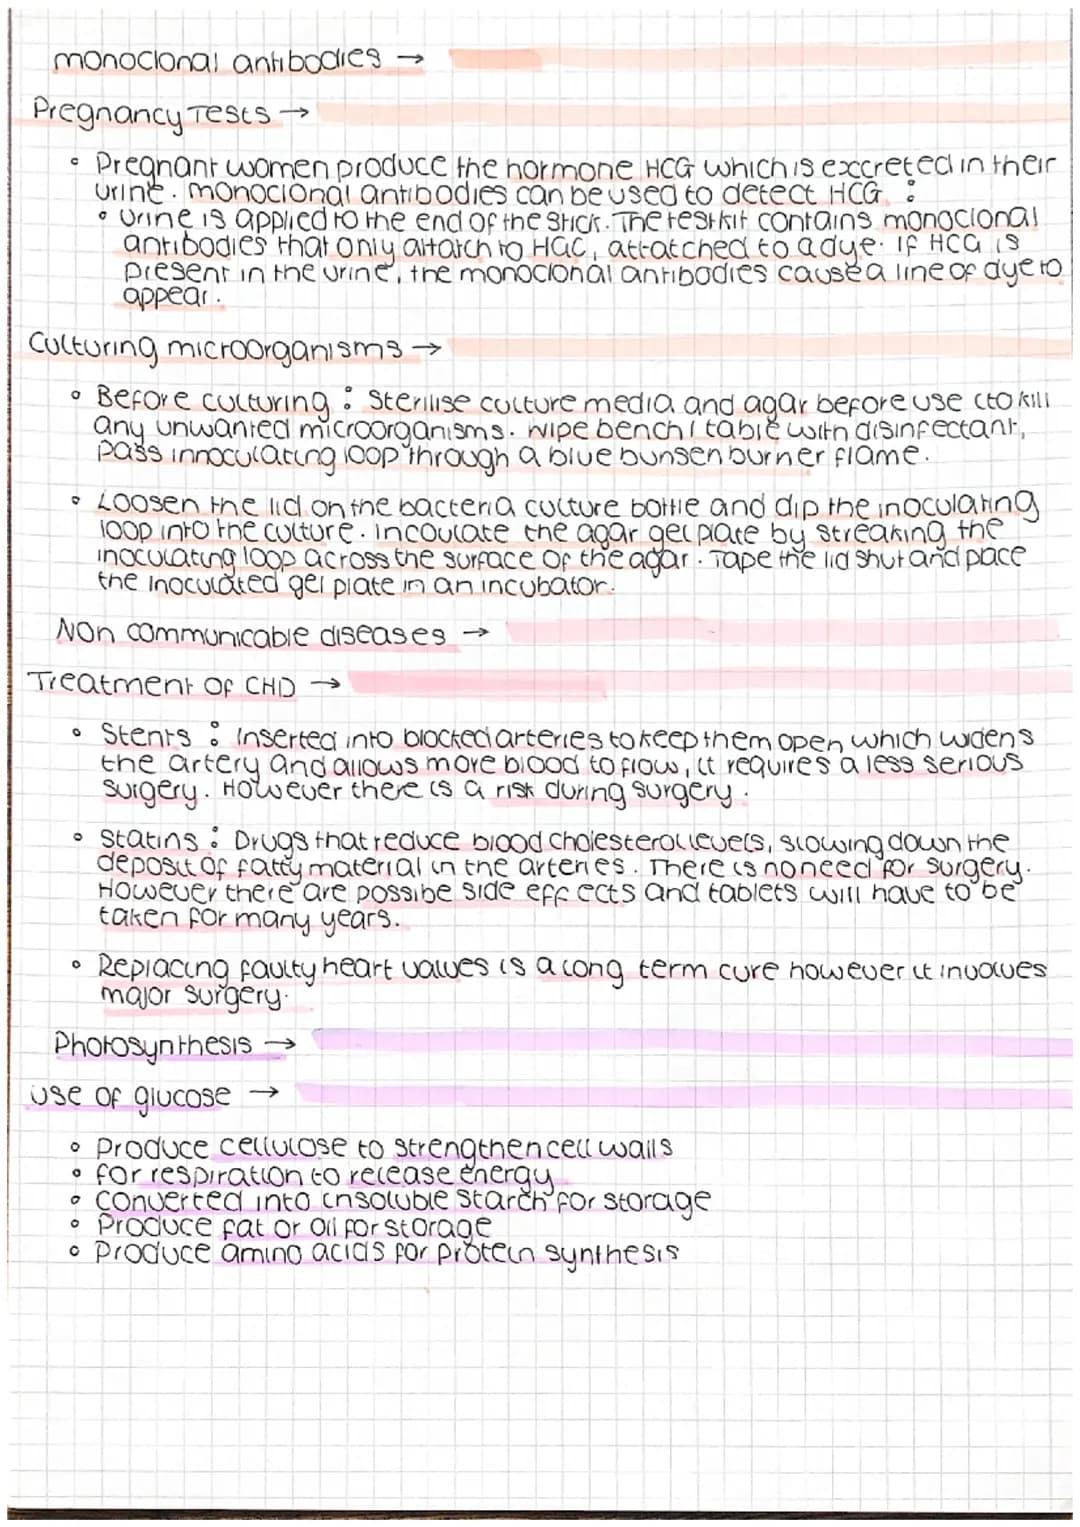 monoclonal antibodies →
Pregnancy Tests →
• Pregnant women produce the hormone HCG which is excreted in their
urine. monoclonal antibodies can be used to detect HCG :
• Urine is applied to the end of the stick. The test kit contains monoclonal
antibodies that only attatch to HGC, attatched to a dye. If HCG is
present in the urine, the monoclonal antibodies cause a line of dye to
appear.
Culturing microorganisms →
• Before culturing : Sterilise culture media and agar before use (to kill
any unwanted microorganisms. Wipe bench / table with disinfectant,
Pass innoculating loop through a blue bunsen burner flame.
• Loosen the lid on the bacteria culture bottle and dip the inoculating
loop into the culture. Incoulate the agar gel plate by streaking the
inoculating loop across the surface of the agar. Tape the lid shut and pace
the inoculated gel plate in an incubator.
Non communicable diseases →
Treatment of CHD →
• Stents : Inserted into blocked arteries to keep them open which widens
the artery and allows more blood to flow, it requires a less serious
surgery. However there is a risk during surgery.
• Statins : Drugs that reduce blood cholesterol levels, slowing down the
deposit of fatty material in the arteries. There is no need for surgery.
However there are possibe side effects and tablets will have to be
taken for many years.
• Replacing faulty heart valves is a long term cure however it involves
major surgery.
Photosynthesis →
use of glucose →
• Produce cellulose to strengthen cell walls
• for respiration to release energy
• converted into insoluble starch for storage
• Produce fat or oil for storage
• Produce amino acids for protein synthesis